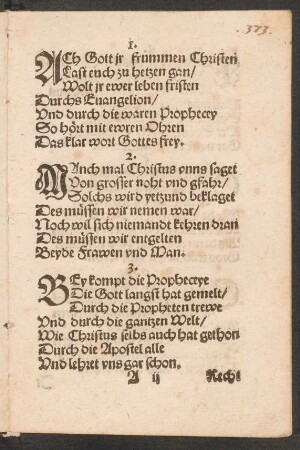 373.
1.
ACh Gott jr frummen Christen
Last euch zu hetzen gan/
Wolt jr ewer leben fristen
Durchs Euangelion/
Vnd durch die waren Prophecey
So hört mit ewren Ohren
Das klar wort Gottes frey.
2.
MAnch mal Christus vnns saget
Von grosser noht vnd gfahr/
Solchs wird yetzund beklaget
Des müssen wir nemen war/
Noch wil sich niemandt kehren dran
Des müssen wir entgelten
Beyde Frawen vnd Man.
3.
BEy kompt die Propheceye
Die Gott langst hat gemelt/
Durch die Propheten trewe
Vnd durch die gantzen Welt/
Wie Christus selbs auch hat gethon
Durch die Apostel alle
Vnd lehret vns gar schon.
A ij Recht